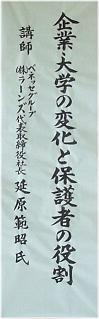 企業・大学の変化と保護者の役割
講師 ベネッセグループ
㈱ラーンズ代表取締役社長 延原範昭氏